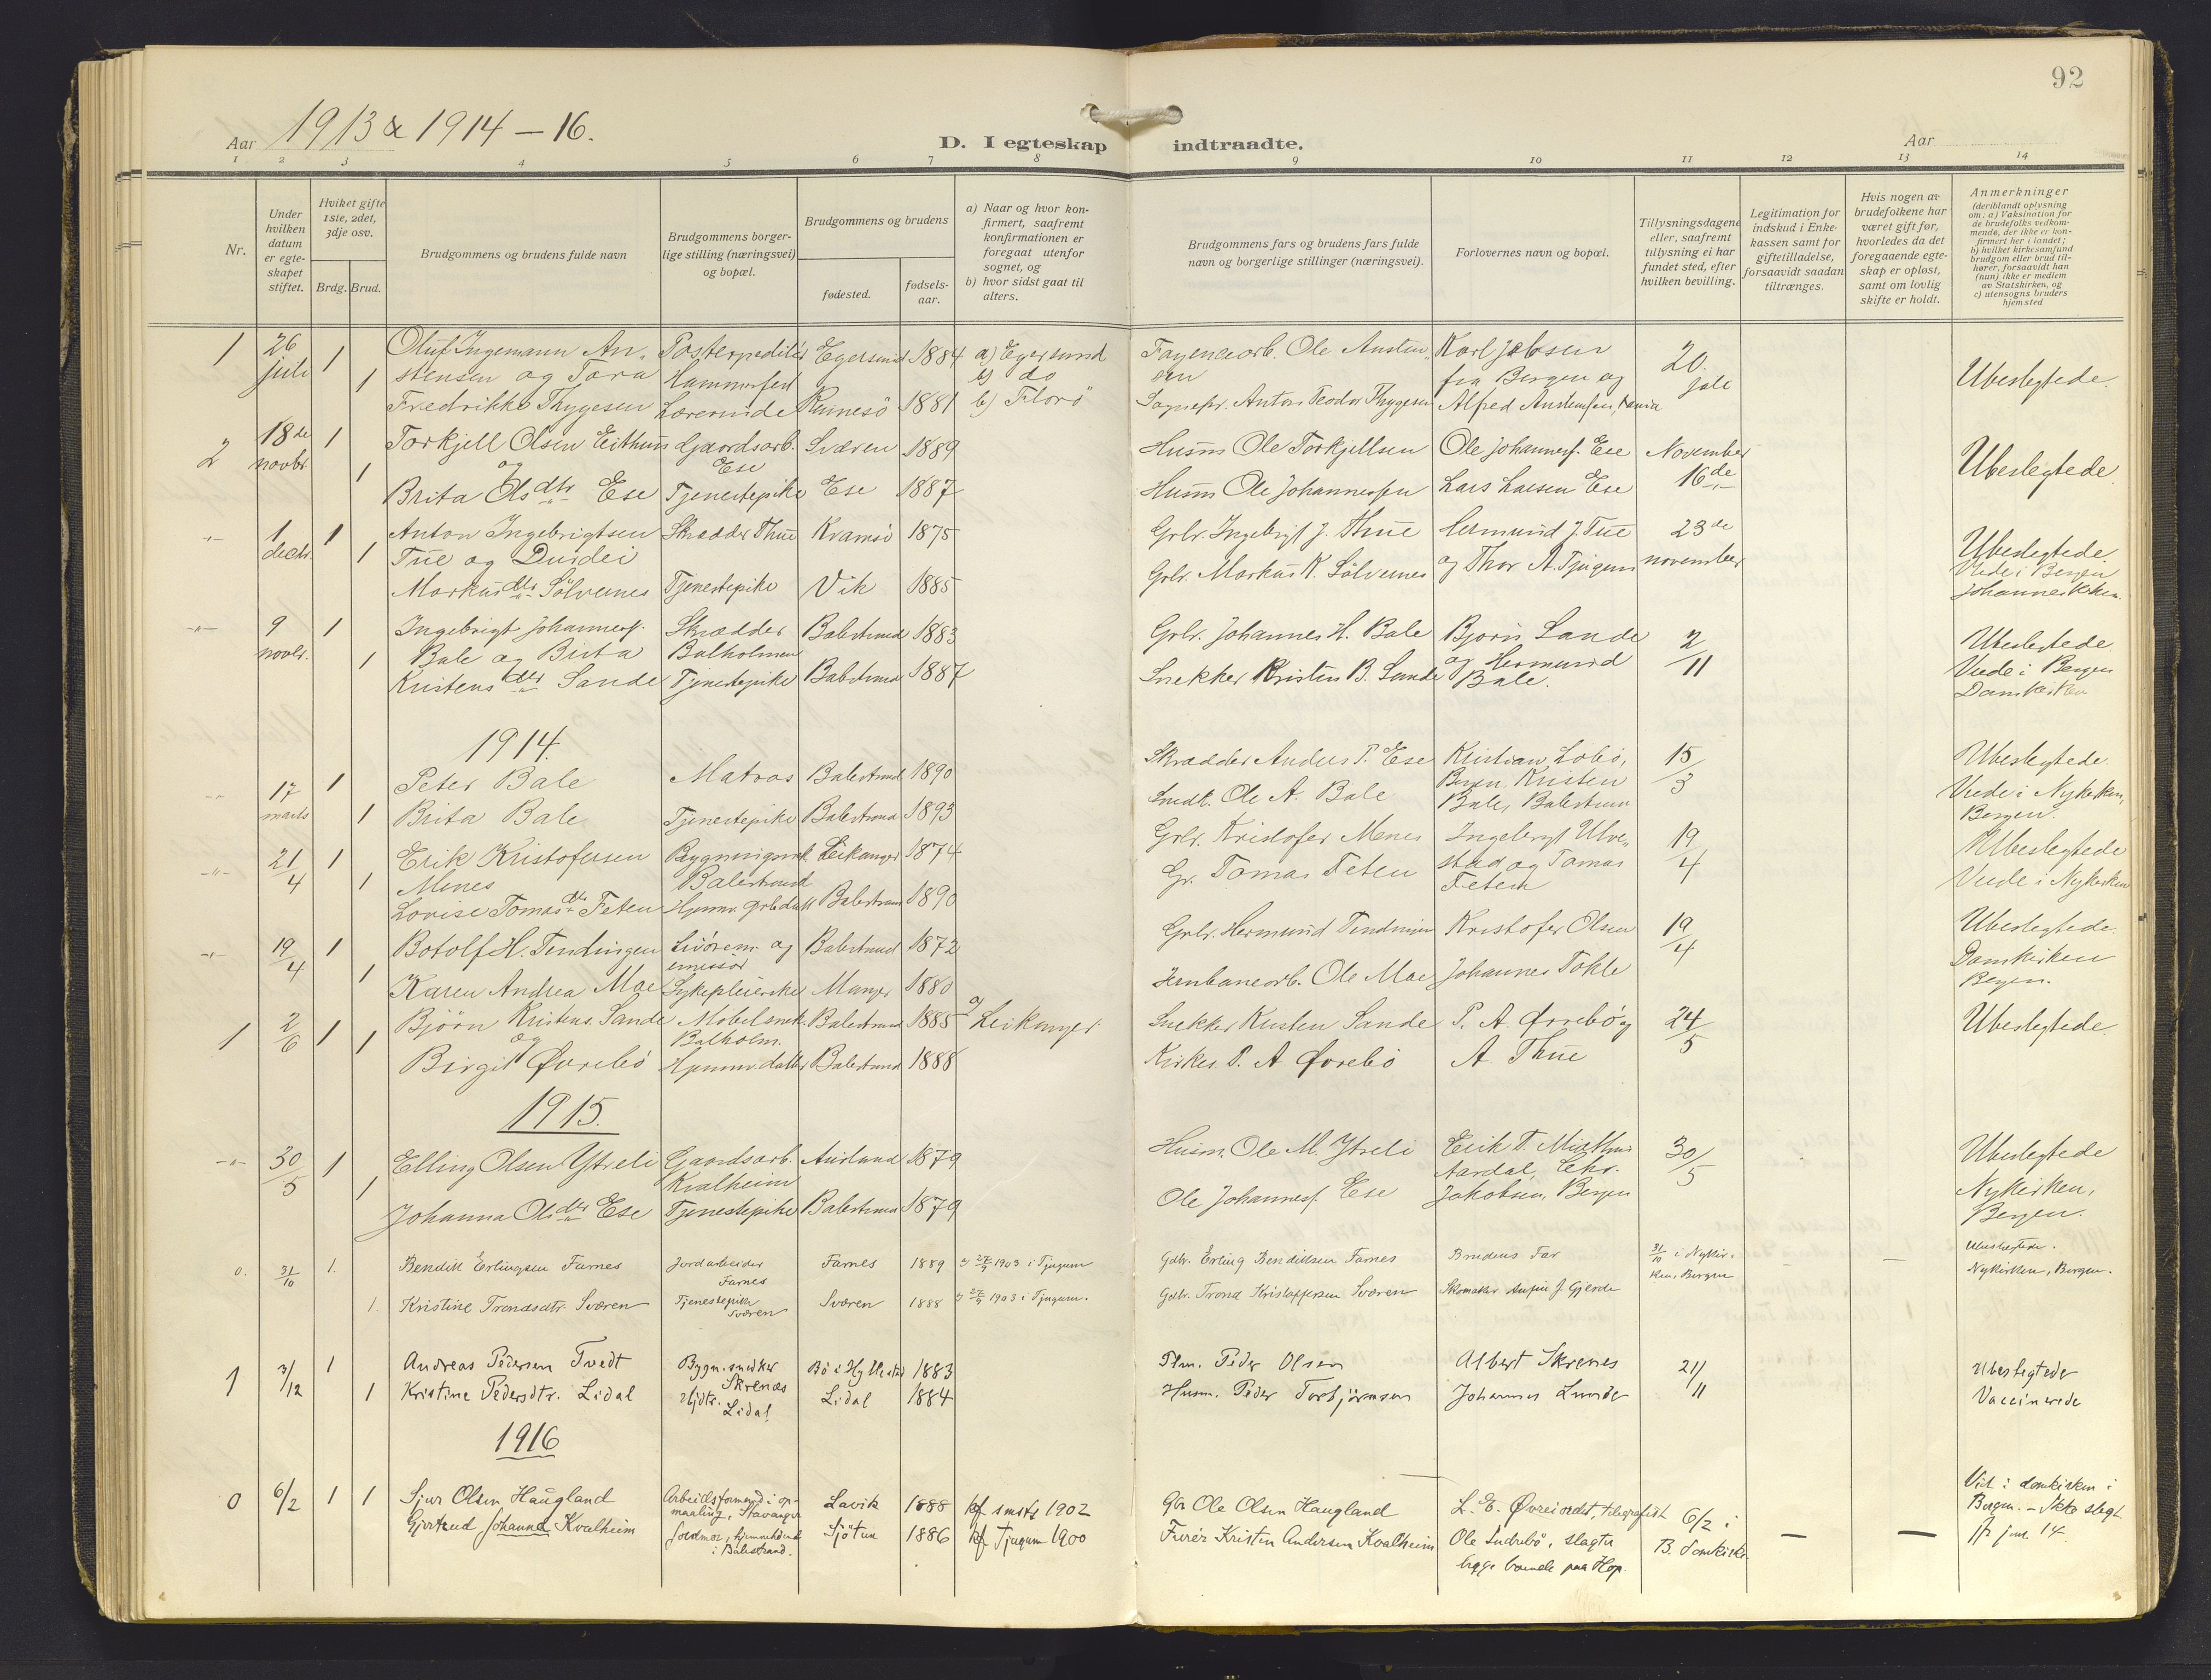 92
1913 & 1914 – 16.
Aar
D. I egteskap indtraadte.
Aar
1 2 3 4 5 6 7 8 9 10 11 12 13 14
Nr.
Under hvilken datum er egteskapet stiftet.
Hviket gifte 1ste, 2det, 3dje osv.
Brdg. Brud.
Brudgommens og brudens fulde navn
Brudgommens borgerlige stilling (næringsvei) og bopæl.
Brudgommens og brudens
fødested.
fødselsaar.
a) Naar og hvor konfirmert, saafremt konfirmationen er foregaat utenfor sognet, og
b) hvor sidst gaat til alters.
Brudgommens fars og brudens fars fulde navn og borgerlige stillinger (næringsvei).
Forlovernes navn og bopæl.
Tillysningsdagene eller, saafremt tillysning ei har fundet sted, efter hvilken bevilling.
Legitimation for indskud i Enkekassen samt for giftetilladelse, forsaavidt saadan tiltrænges.
Hvis nogen av brudefolkene har været gift før, hvorledes da det foregaaende egteskap er opløst, samt om lovlig skifte er holdt.
Anmerkninger
(deriblandt oplysning om: a) Vaksination for de brudefolks vedkommende, der ikke er konfirmert her i landet; b) hvilket kirkesamfund brudgom eller brud tilhører, forsaavidt han (hun) ikke er medlem av Statskirken, og c) utensogns bruders hjemsted
1 26 juli 1 Oluf Ingemann Austensen og Tora Postexpeditör Hammerfest Egersund 1884 a) Egersund b) do Fayencearb. Ole Austensen Karl Jebsen fra Bergen og 20. juli Ubeslegtede.
1 Fredrikke Thygesen Lærerinde Rennesö 1881 b) Florö Sognepr. Anton Teodor Thygesen Alfred Austensen,
2 18de novbr. 1 Torkjell Olsen Eithun og Gaardsarb. Ese Sværen 1889 Husm Ole Torkjellsen Ole Johannesf. Ese November 16de Ubeslegtede.
1 Brita Olsdtr Ese Tjenestepike Ese 1887 Husm Ole Johannessen Lars Larsen Ese
-"- 1 decbr. 1 Anton Ingebrigtsen Tue og Skrædder Thue Kvamsö 1875 Grbr. Ingebrigt J. Thue Hermund J. Tue 23de november Ubeslegtede
1 Markusdtr Sölvernes Tjenestepike Vik 1885 Grbr. Markus K. Sölvernes og Thor A. Tjugum Viede i Bergen Johanneskirken.
-"- 9 novbr. 1 Ingebrigt Johannesf. Bale og Brita Skrædder Balholmen Balestrand 1883 Grbr. Johannes H. Bale Bjorn Sande 2/11 Ubeslegtede.
1 Kristensdtr Sande Tjenestepike Balestrand 1887 Snekker Kristen B. Sande og Hermund Bale. Viede i Bergen Domkirken
1914.
-"- 17 marts 1 Peter Bale Matros Balestrand 1890 Skrædder Anders P. Ese Kristian Lobö, Bergen, Kristen 15/3 Ubeslegtede.
1 Brita Bale Tjenestepike Balestrand 1893 Smedt. Ole A. Bale Bale, Balestrand Viede i Nykirken, Bergen.
-"- 21/4 1 Erik Kristofersen Menes Balestrand Leikanger 1874 Grbr. Kristofer Menes Ingebrigt Ulvestad og Tomas 19/4 Ubeslegtede
1 Lovise Tomasdtr Feten Balestrand 1890 Gr. Tomas Feten Feten Viede i Nykirken
-"- 19/4 1 Botolf H. Tendingen og emissör Balestrand 1872 Grbr. Hermund Tendingen Kristofer Olsen 19/4 Ubeslegtede.
1 Karen Andrea Moe Sykepleierske Manger 1880 Jernbanearb. Ole Moe Johannes Tokle Domkirken Bergen.
1 2/6 1 Björn Kristens. Sande og Möbelsnek. Balholm. Balestrand 1885 a) Leikanger Snekker Kristen Sande P. A. Örebö og 24/5 Ubeslegtede.
1 Birgit Øvrebö Hjemmv. datter Balestrand 1888 Kirkes. P. A Øvrebö A. Thue
1915.
-"- 30/5 1 Elling Olsen Ytreli Gaardsarb. Kvalheim Aurland 1879 Husm. Ole M. Ytreli Erik T. Aardal, Chr. 30/5 Ubeslegtede
1 Johanna Olsdtr Ese Tjenestepike Balestrand 1879 Ole Johannesf. Ese Jakobsen, Bergen Nykirken, Bergen.
0. 31/10 1. Bendik Erlingsen Farnes Jordarbeider Farnes Farnes 1889 27/9 1903 i Tjugum Gdbr. Erling Bendiksen Farnes Brudens Far 31/10 i Nykirken, Bergen – – Ubeslegtede. Nykirken, Bergen.
1. Kristine Trondsdtr. Sværen Tjenestepike Sværen Sværen 1888 27/9 1903 i Tjugum. Gdbr. Trond Kristoffersen Sværen Skomaker Anfin J. Gjerde
1 3/12 1 Andreas Pedersen Tvedt Bygn. snedker Skrenæs Bö i Hyllestad 1883 Peder Olsen Albert Skrenes 21/11 Ubeslegtede
1 Kristine Pedersdtr. Lidal Lidal Lidal 1884 Husm. Peder Torbjörnsen Johannes Lunde Vaccinerede
1916
0 6/2 1 1 Sjur Olsen Haugland Arbeidsformand i opmaaling, Stavanger Lavik 1888 kf. smsts 1902 Gbr Ole Olsen Haugland L. E. Øvreiordet, telegrafist 6/2 i Viet i domkirken i Bergen. – Ikke slegt.
Gjertrud Johanna Kvalheim Jordmor, hjemmehørende i Balestrand. Sjötun 1886 kf Tjugum 1900 Furér Kristen Andersen Kvalheim Ole Indrebö, slagter begge boende paa Hop. B. domkirke. – –